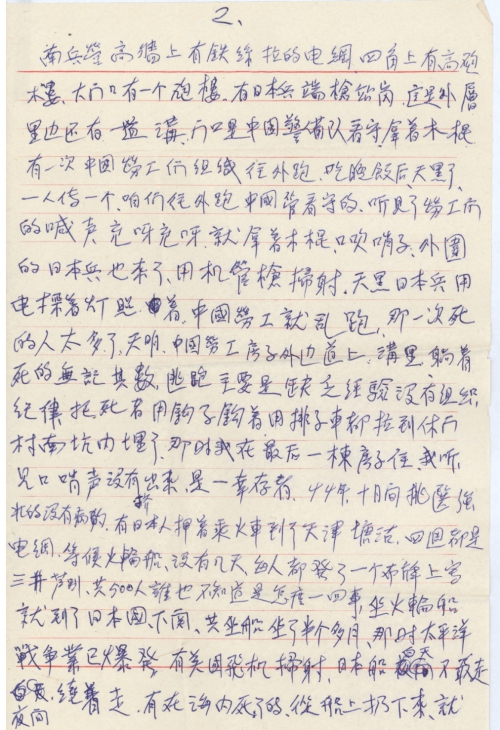 2、
南兵营高墙上有铁丝拉的电網、四角上有高炮
木蒌、大门口有一个炮楼、有日本兵端槍站岗、这是外層
里边还有一道溝、门口是中国警备队看守、拿着木棍
有一次中國劳工们组织往外跑、吃晚飯后、天黑了、
一人传一个、咱们往外跑、中國管看守的、听見了劳工们
的喊夹充呀充呀、就拿着木棍、口吹哨子、外圍
的日本兵也来了、用机管槍掃射、天黑日本兵用
电摸着灯照着、中國劳工就乱跑、那一次死
的人太多了、天明、中國劳工房子外边道上、溝里躺着
死的無記其数、逃跑主要是缺乏经驗没有组织
纪律、把死者用鈎子鈎着用排子車都拉到休门
村南坑内埋了、那时我在最后一棟房子住、我听
見口哨声没有挤出来、是一幸存者、44年十月间挑醫強
壮的没有病的、有日本人押着乘火車到了天津塘沽、四週都是
电網、等侯火輪船、没有几天、每人都發了一个布牌上写
三井芦别、共500人誰也不知道是怎庅一回事、坐火輪船
就到了日本國、下関、共坐船坐了半个多月、那时太平洋
戦争業已爆發有美國飛机掃射、日本船白天不敢走
夜间、绕着走、有在海内死了的、從船上扔下來、就